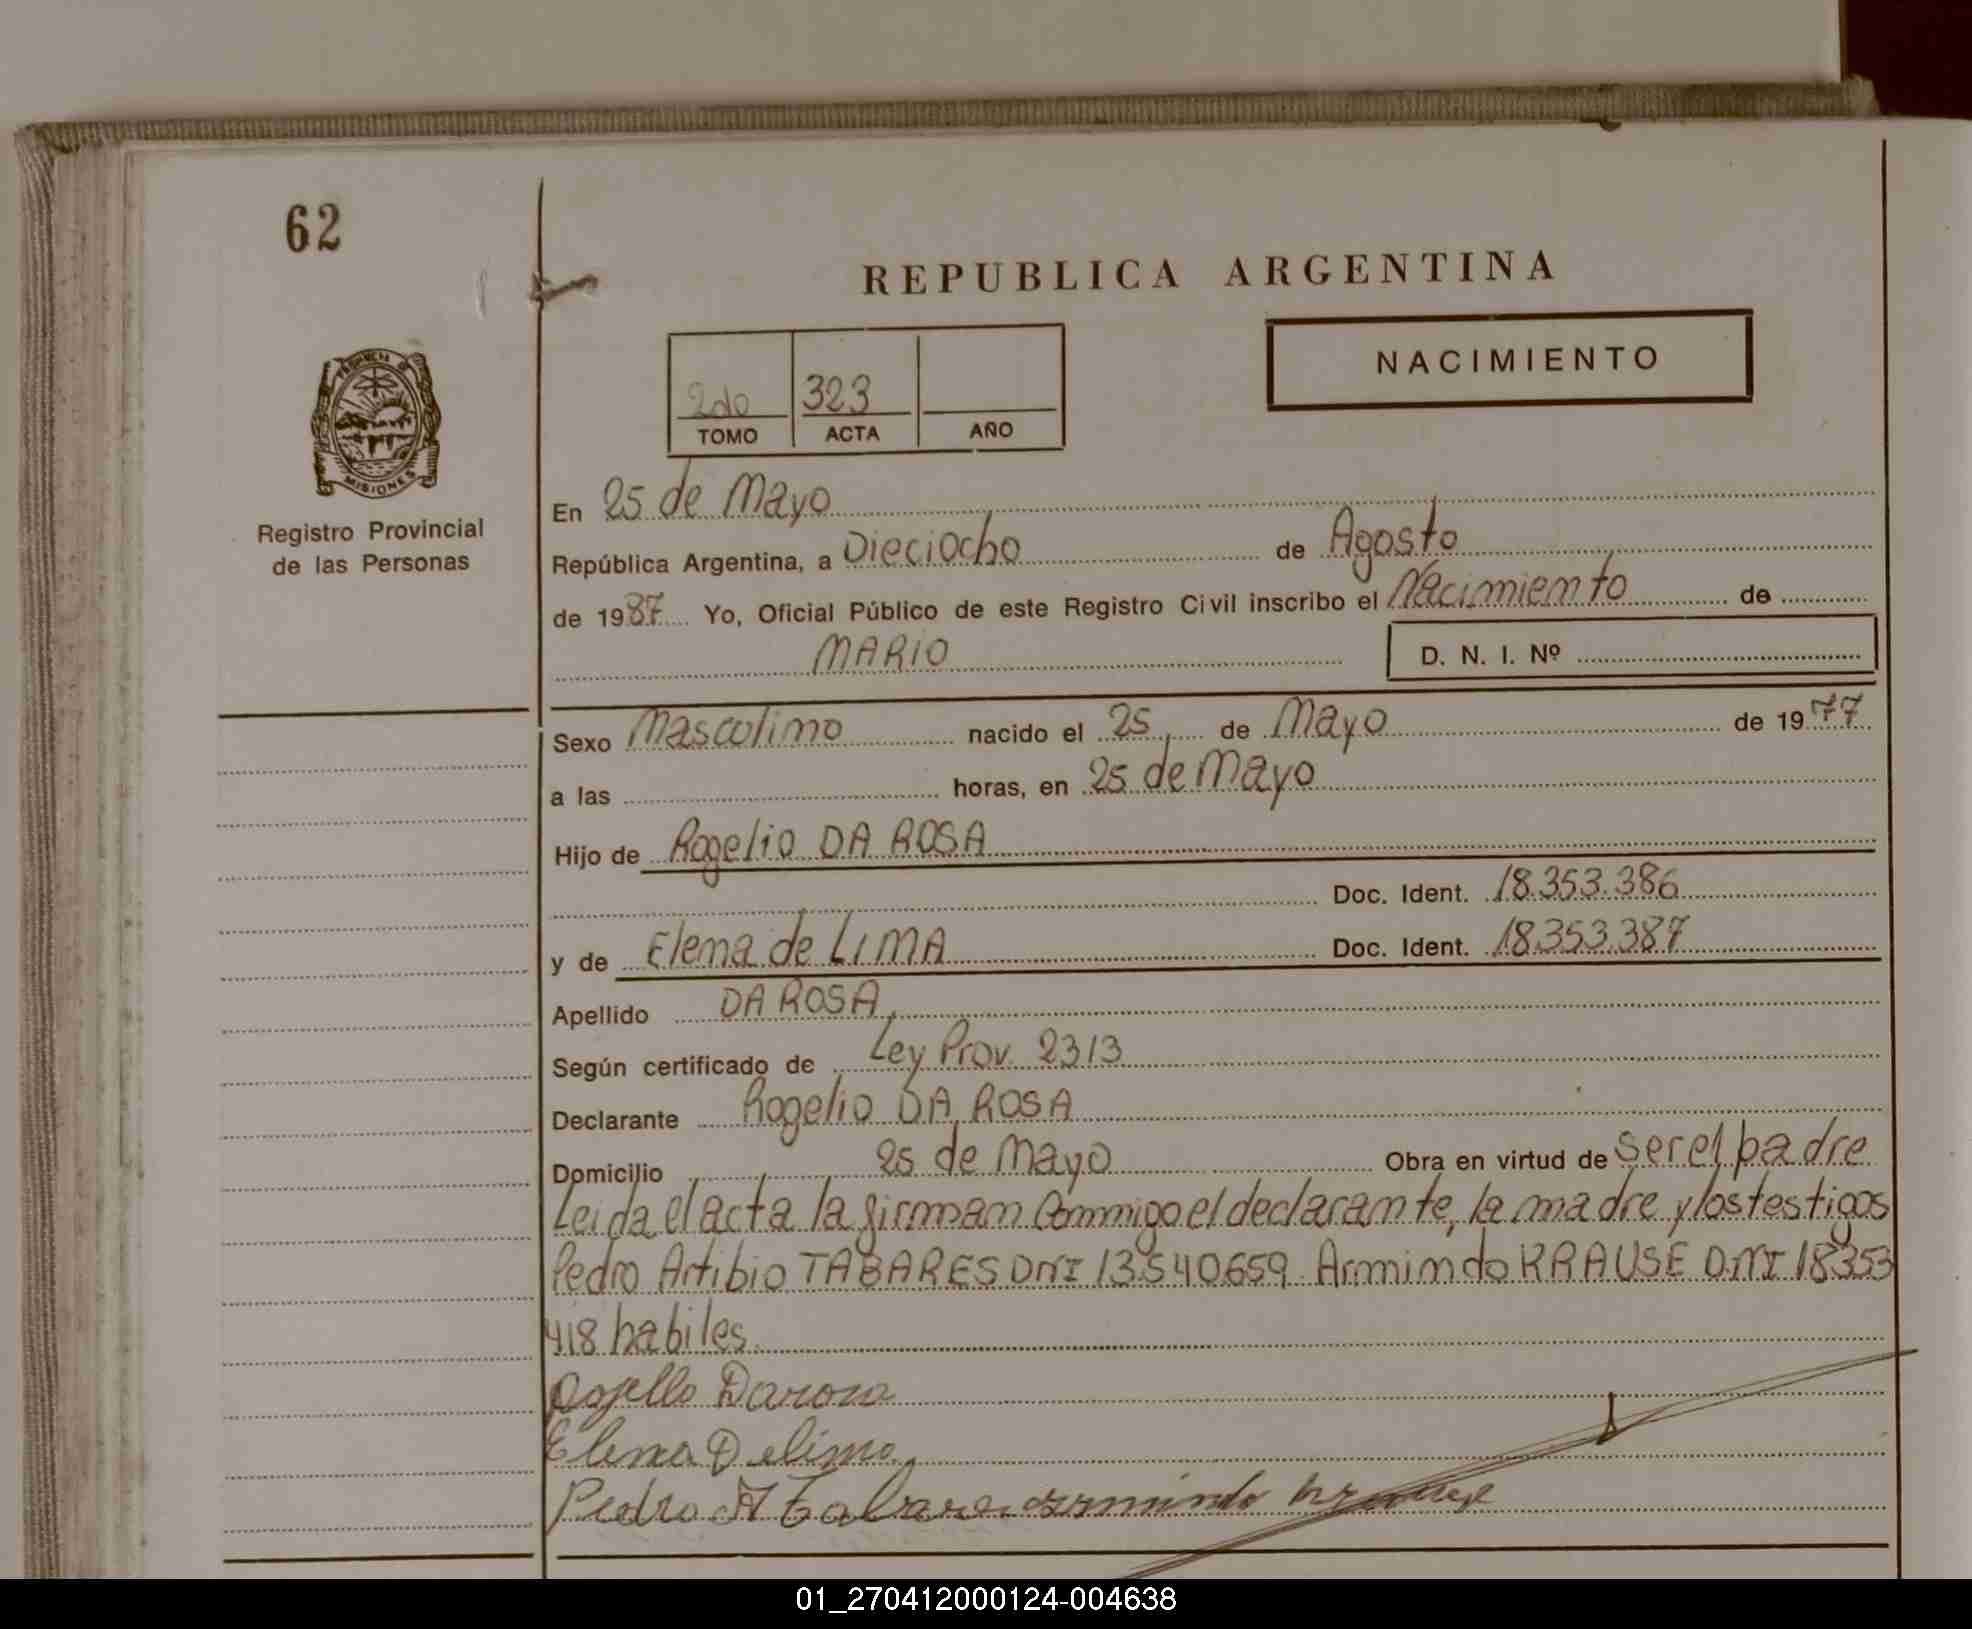 62
REPUBLICA ARGENTINA
NACIMIENTO
2do 323
TOMO ACTA AÑO
PROVINCIA D
MISIONES
Registro Provincial
de las Personas
En 25 de Mayo
República Argentina, a Dieciocho de Agosto
de 1987 Yo, Oficial Público de este Registro Civil inscribo el Nacimiento de
MARIO D. N. I. Nº
Sexo Mascolino nacido el 25 de Mayo de 1977
a las horas, en 25 de Mayo
Hijo de Rogelio DA ROSA
Doc. Ident. 18.353.386
y de Elena de LIMA Doc. Ident. 18.353.387
Apellido DA ROSA
Según certificado de Ley Prov. 2313
Declarante Rogelio DA ROSA
Domicilio 25 de Mayo Obra en virtud de ser el padre
Leida el acta la firman Conmigo el declarante, la madre y los testigos
Pedro Artibio TABARES DNI 13540659 Armindo KRAUSE DNI 18353
418 habiles.
Elena Delima
Pedro A Tabare armindo krause
01_270412000124-004638